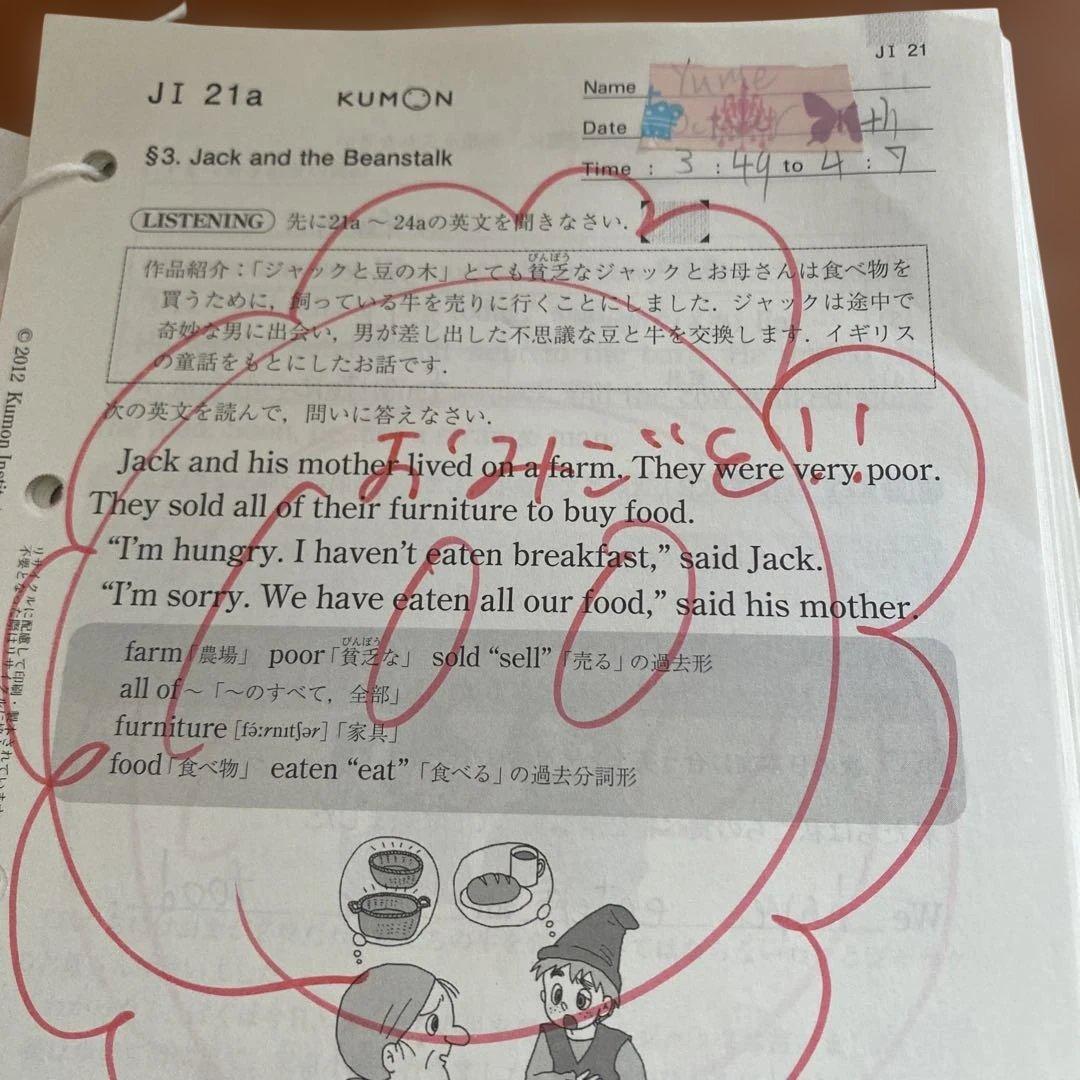 JI 21
JI 21a KUMON
Name Yume
Date th
Time : 3 : 49 to 4 : 7
§3. Jack and the Beanstalk
LISTENING 先に21a～24aの英文を聞きなさい.
作品紹介：「ジャックと豆の木」とても貧乏なジャックとお母さんは食べ物を
びんぼう
買うために，飼っている牛を売りに行くことにしました．ジャックは途中で
奇妙な男に出会い，男が差し出した不思議な豆と牛を交換します．イギリス
の童話をもとにしたお話です．
次の英文を読んで，問いに答えなさい．
おみごと!!
Jack and his mother lived on a farm. They were very poor.
They sold all of their furniture to buy food.
“I'm hungry. I haven't eaten breakfast,” said Jack.
“I'm sorry. We have eaten all our food,” said his mother.
100
farm「農場」 poor「貧乏な」 sold “sell”「売る」の過去形
びんぼう
all of～「～のすべて，全部」
furniture [fə́ːrnɪtʃər]「家具」
food「食べ物」 eaten “eat”「食べる」の過去分詞形
© 2012 Kumon Instit
リサイクルに配慮して印刷・製本されています
不要となった際は